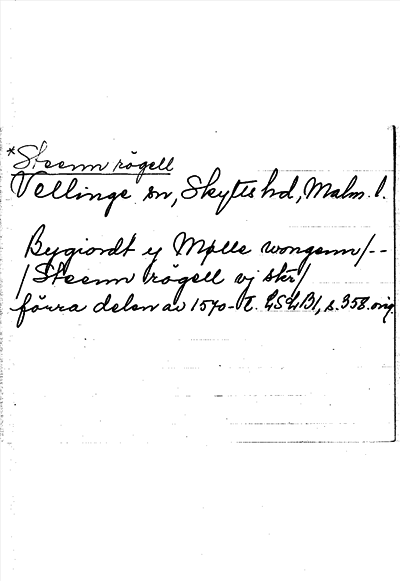 *Steenn rögell
Vellinge sn, Skytts hd, Malm. l.
Bygiordt y Mølle wongenn/--
/Steenn rögell vj skr/
förra delen av 1570-t. LSLB1, s.358. orig.